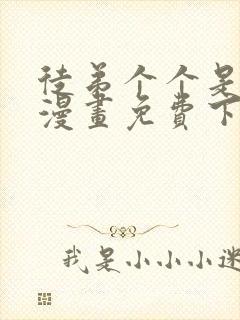 徒弟个个是
漫畫免費下
我是小小小迷